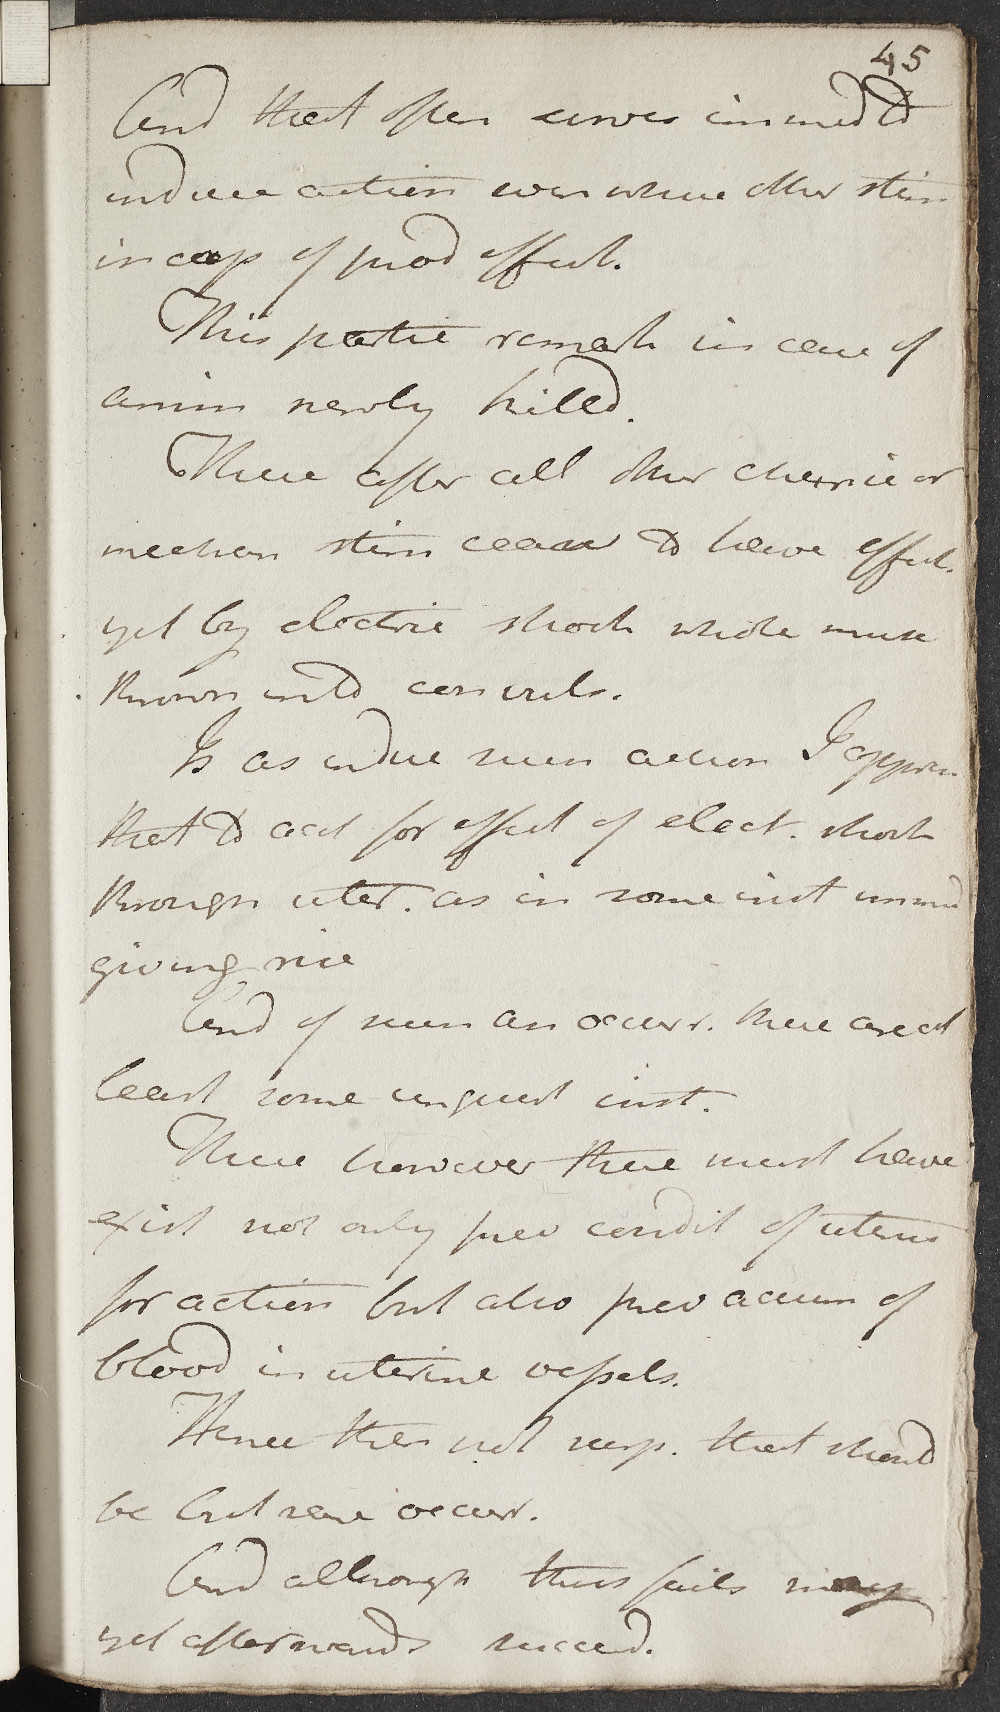 45
And that often serves immed to
induce action even where other stim
incap of prod effect.
This partic remark in case of
anim newly killed.
There after all other chemic or
mechan stim cease to have effect.
yet by electric shock whole musc
thrown into convuls.
It is as induc such action I appreh
that to acct for effect of elect. shock
through uter. as in some inst immed
giving rise
And of such an occurr. there are at
least some unquest inst.
There however there must have
exist not only prev condit of uterus
for action but also prev accum of
blood in uterine vessels.
Hence then not surp. that should
be but rare occurr.
And although thus fails
yet afterwards succeed.